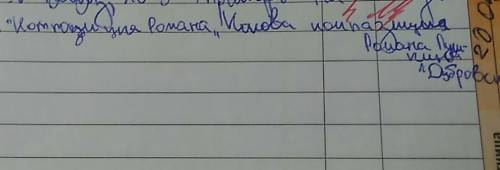 "Композиция романа" Какова композиция
романа Пуш-
кина
"Дубровск